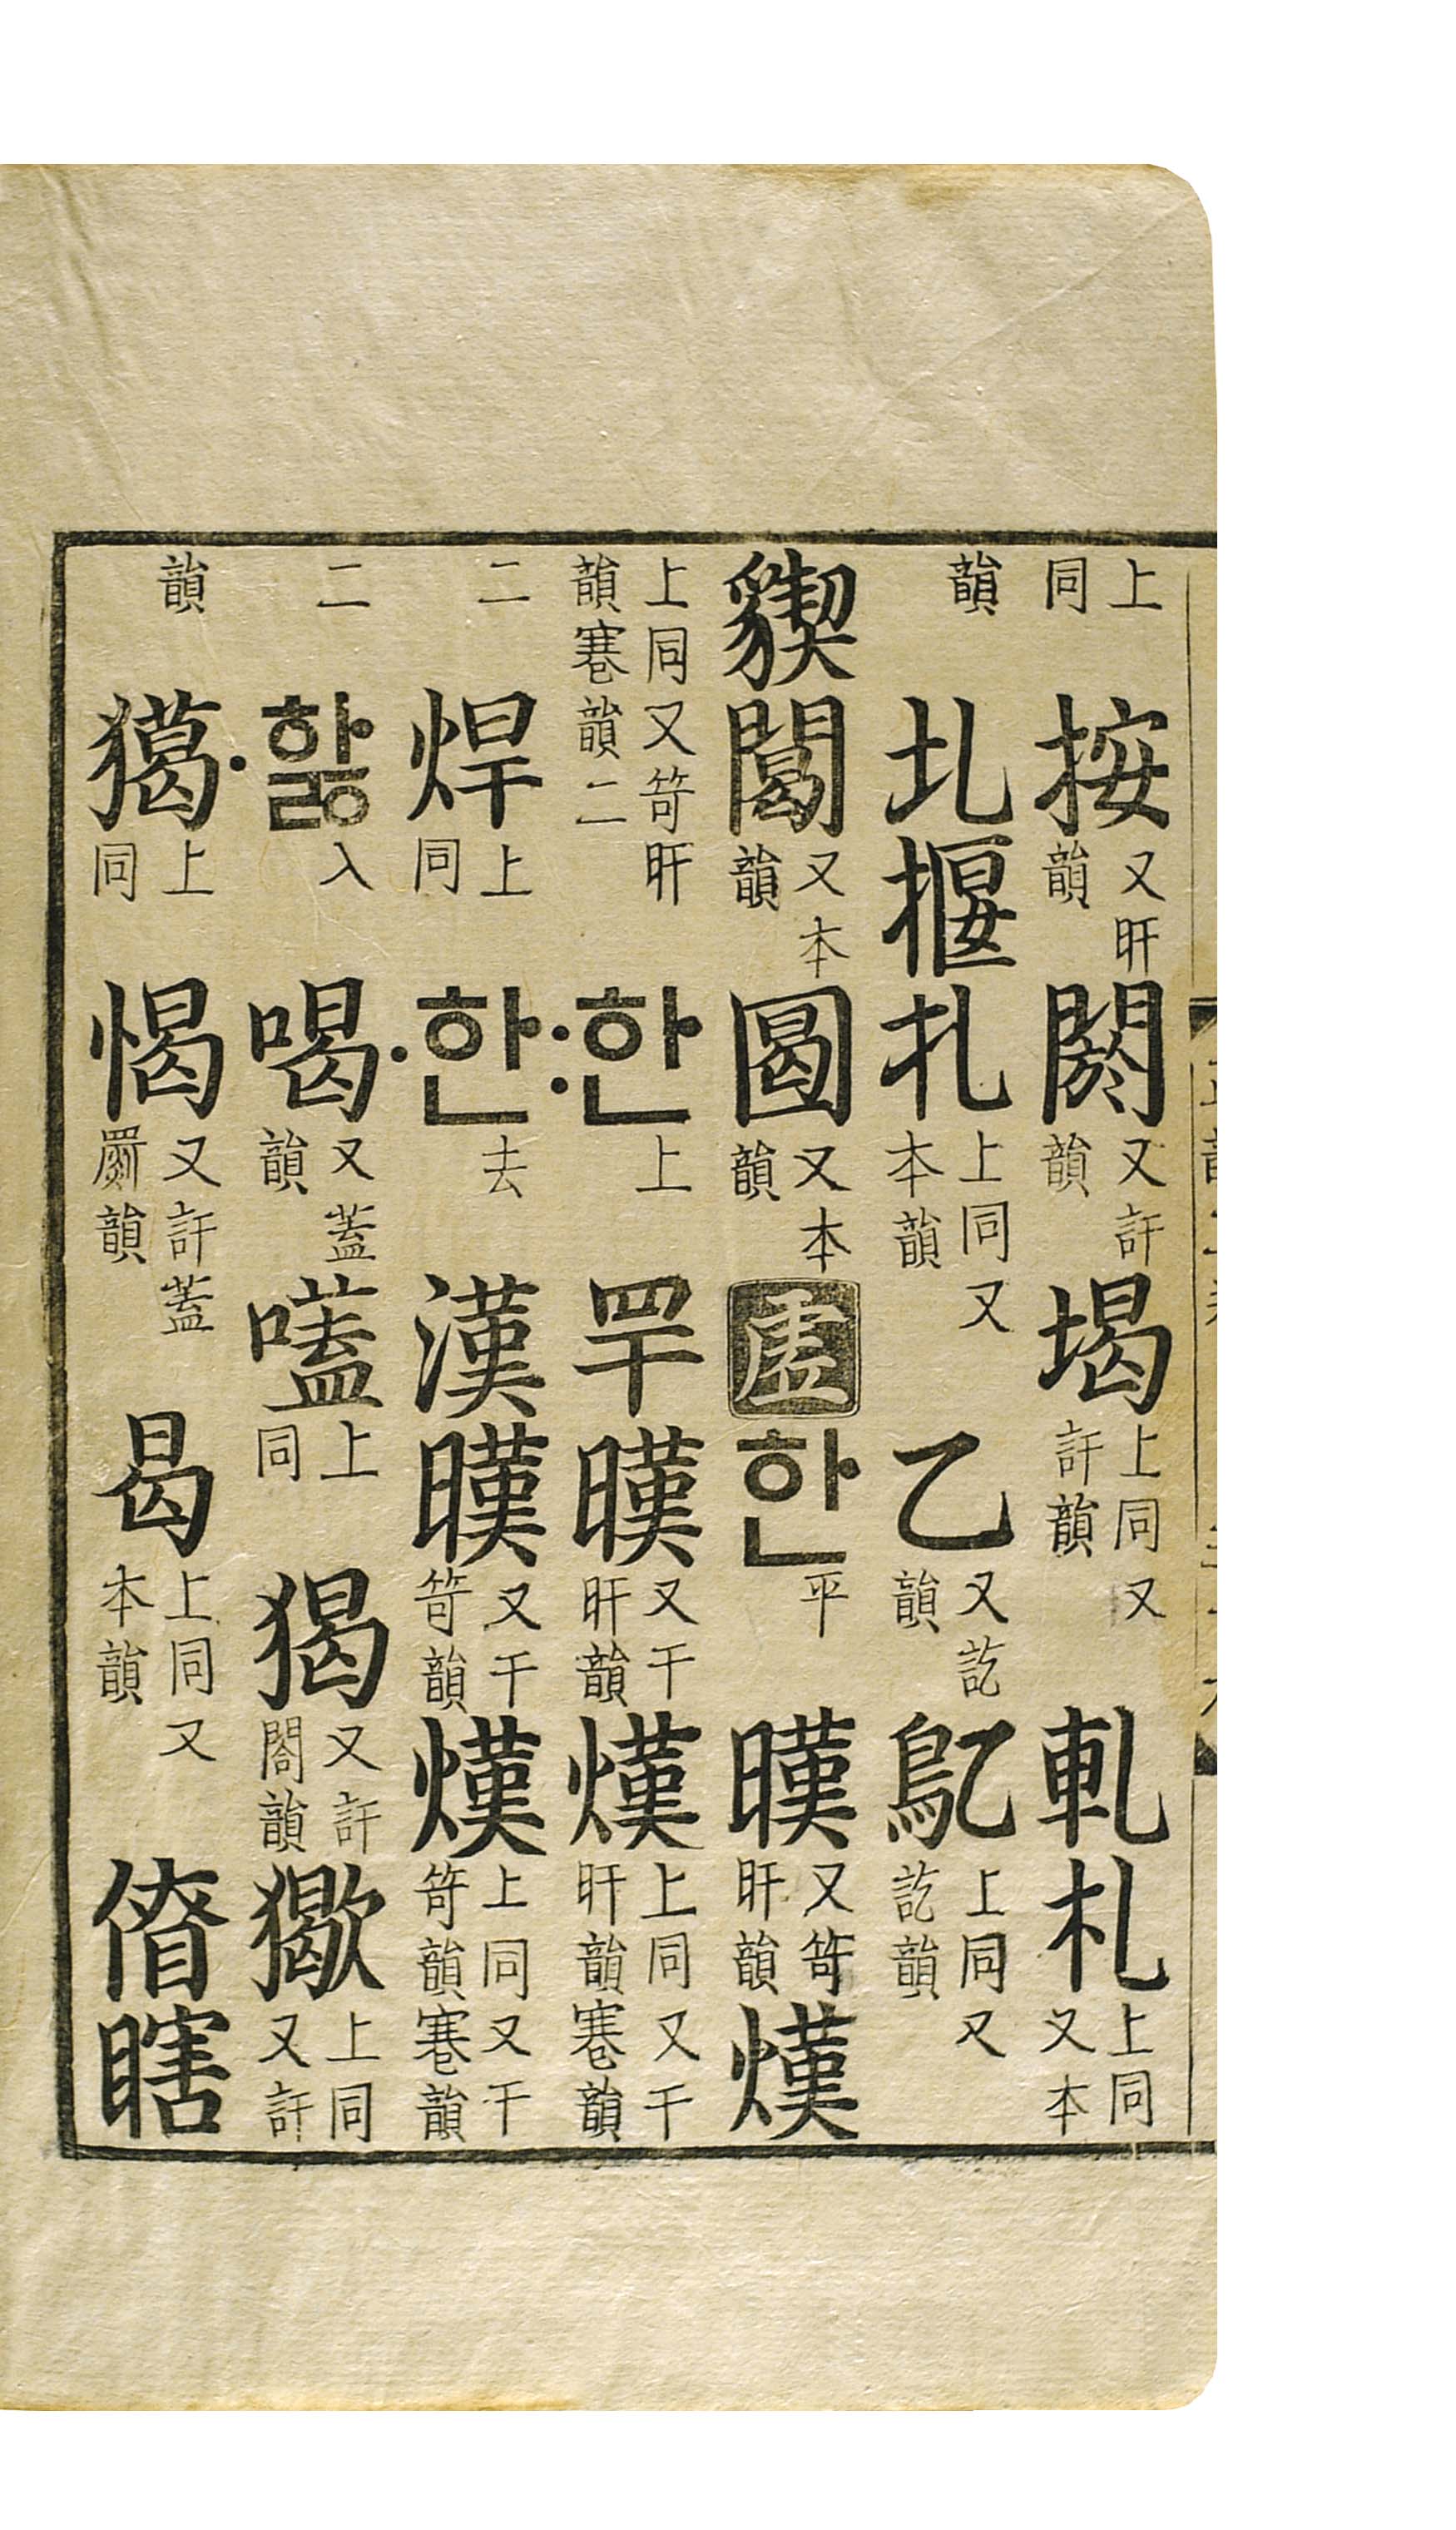 上同按又旰韻閼又訐韻堨上同又訐韻軋札上同又本
韻圠揠扎上同又本韻乙又訖韻鳦上同又訖韻
貏闔又本韻圔又本韻虛한平暵又笴旰韻熯
上同又笴旰韻寋韻二〯한上罕暵又干旰韻熯上同又干旰韻寋韻
二焊上同〮한去漢暵又干笴韻熯上同又干笴韻寋韻
二〮핧入喝又蓋韻嗑上同猲又訐閤韻獥上同又訐
韻獦上同愒又訐蓋罽韻曷上同又本韻㑥瞎